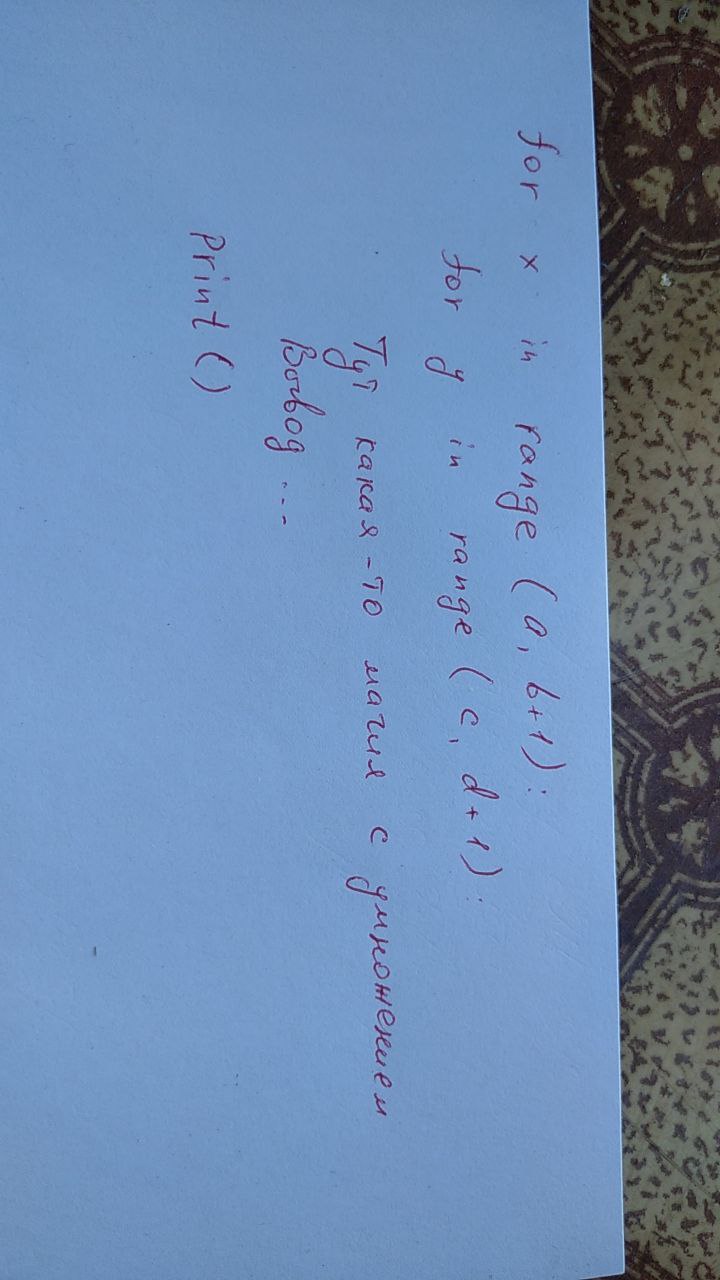 for x in range (a, b+1):
for y in range (c, d+1):
Тут какая-то магия с умножением
Вывод ...
print ()